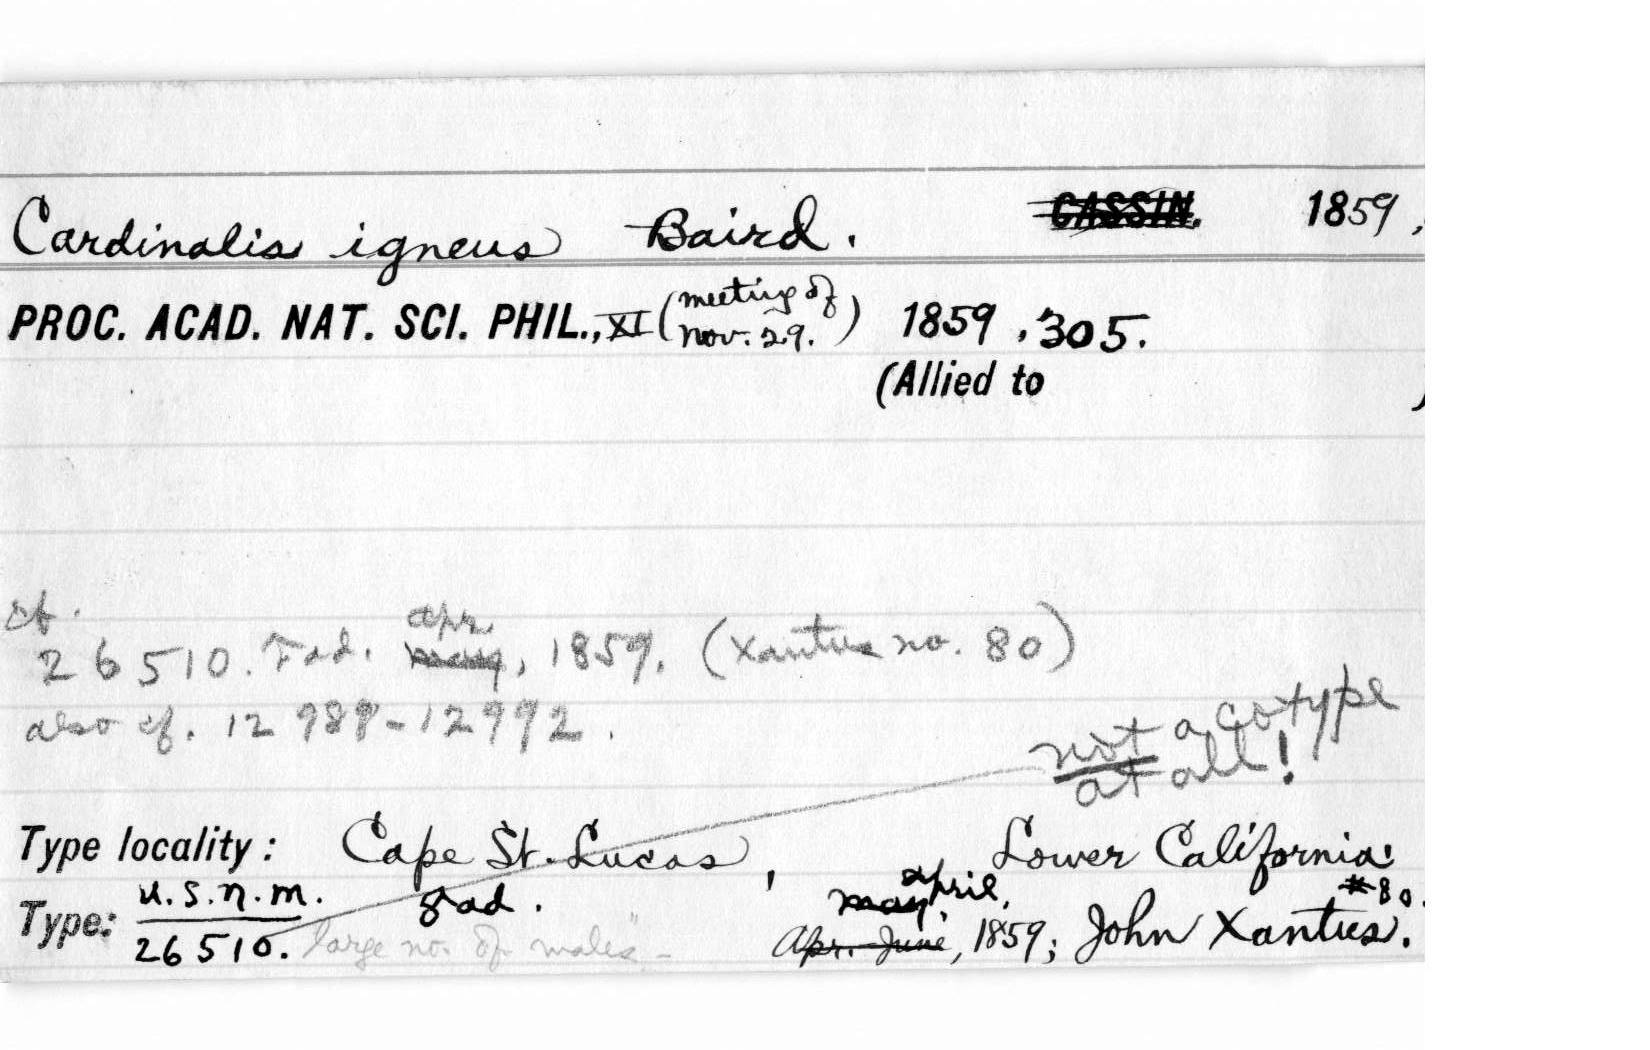 Cardinalis igneus Baird. CASSIN. 1859,
PROC. ACAD. NAT. SCI. PHIL., XI (meeting of Nov. 29.) 1859, 305.
(Allied to )
cf.
26510. ad. apr. may, 1859. (Xantus no. 80)
also cf. 12988-12992.
not a cotype
at all!
Type locality: Cape St. Lucas, Lower California.
Type: U.S.N.M. 26510. ad. may april, Apr. - June, 1859; John Xantus. #80.
large no. of males" -